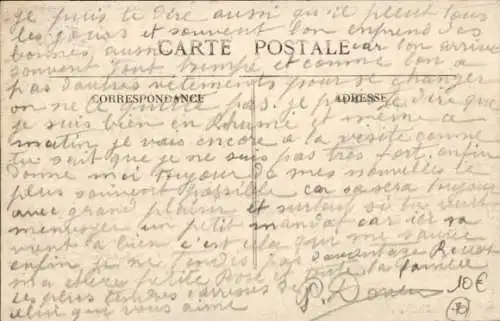 je puis te dire aussi qu'il pleut tous
les jours et souvent l'on en prend des
bonnes aussi car l'on arrive
CARTE POSTALE
souvent tout trempé et comme l'on a
pas d'autres vêtements pour se changer
on ne
CORRESPONDANCE
ADRESSE
pas. je te dire que
je suis bien en Rhume et même ce
matin je vais encore à la visite comme
tu sait que je ne suis pas très fort. enfin
donne moi toujour de mes nouvelles le
plus souvent possible car sa sera toujours
avec grand plaisir et surtout si tu veut
un petit mandat car ici sa
vient à bien c'est cela qui me sauve
enfin je ne pas davantage
ma chère petite Rose et toute la famille
les plus tendres caresses de
celui que vous aime
10€